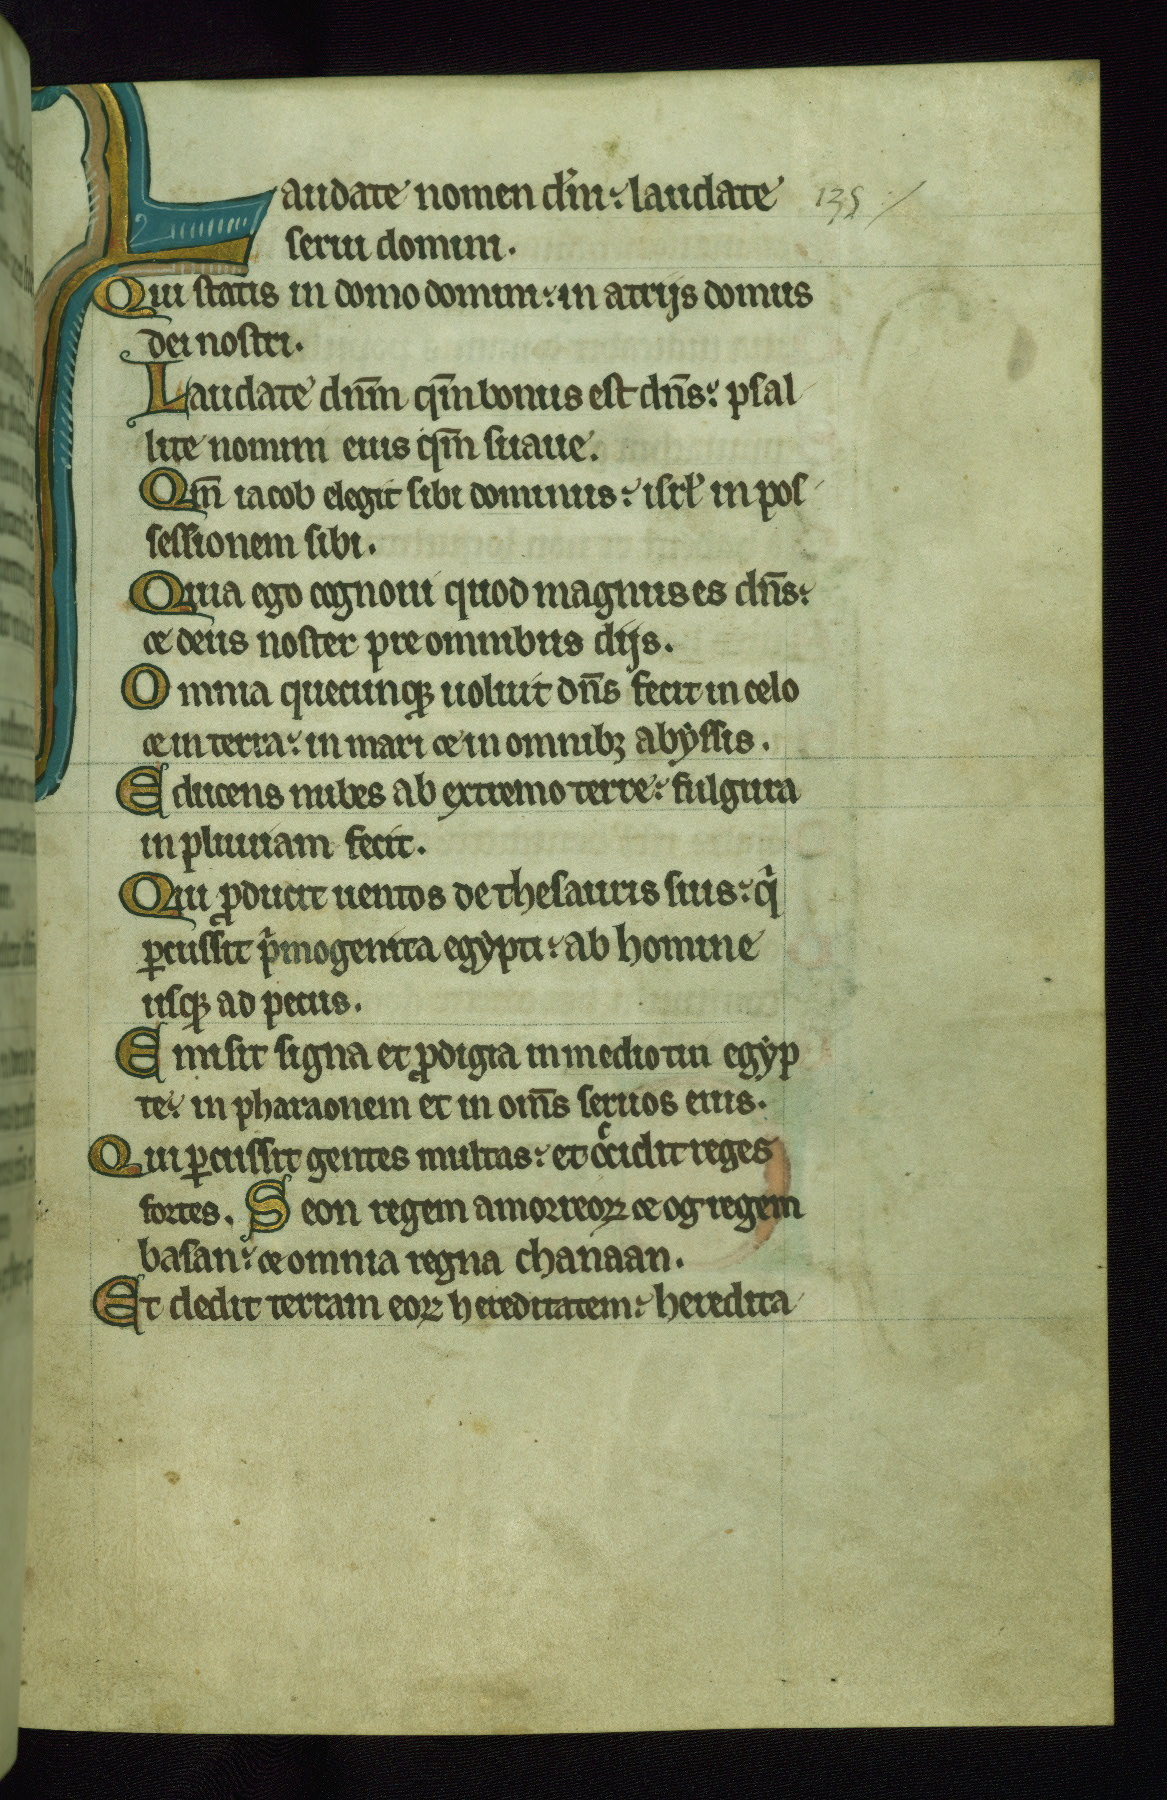 Laudate nomen dn̄i: laudate 135 :/
serui domini.
Qui statis in domo domini: in atrijs domus
dei nostri.
Laudate dn̄m qm̄ bonus est dn̄s: psal
lite nomini eius qm̄ suaue.
Qm̄ iacob elegit sibi dominus: isrl̄ in pos
sessionem sibi.
Quia ego cognoui quod magnus es dn̄s:
& deus noster pre omnibus dijs.
Omnia quecunqꝫ uoluit dn̄s fecit in celo
& in terra: in mari & in omnibꝫ abẏssis.
Educens nubes ab extremo terre: fulgura
in pluuiam fecit.
Qui ꝓducit uentos de thesauris suis: qⁱ
ꝑcussit pⁱmogenita egẏpti: ab homine
usqꝫ ad pecus.
Emisit signa et ꝓdigia in medio tui egẏp
te: in pharaonem et in om̄s seruos eius.
Qui ꝑcussit gentes multas: et occidit reges
fortes. Seon regem amorreoꝝ & og regem
basan: & omnia regna chanaan.
Et dedit terram eoꝝ hereditatem: heredita